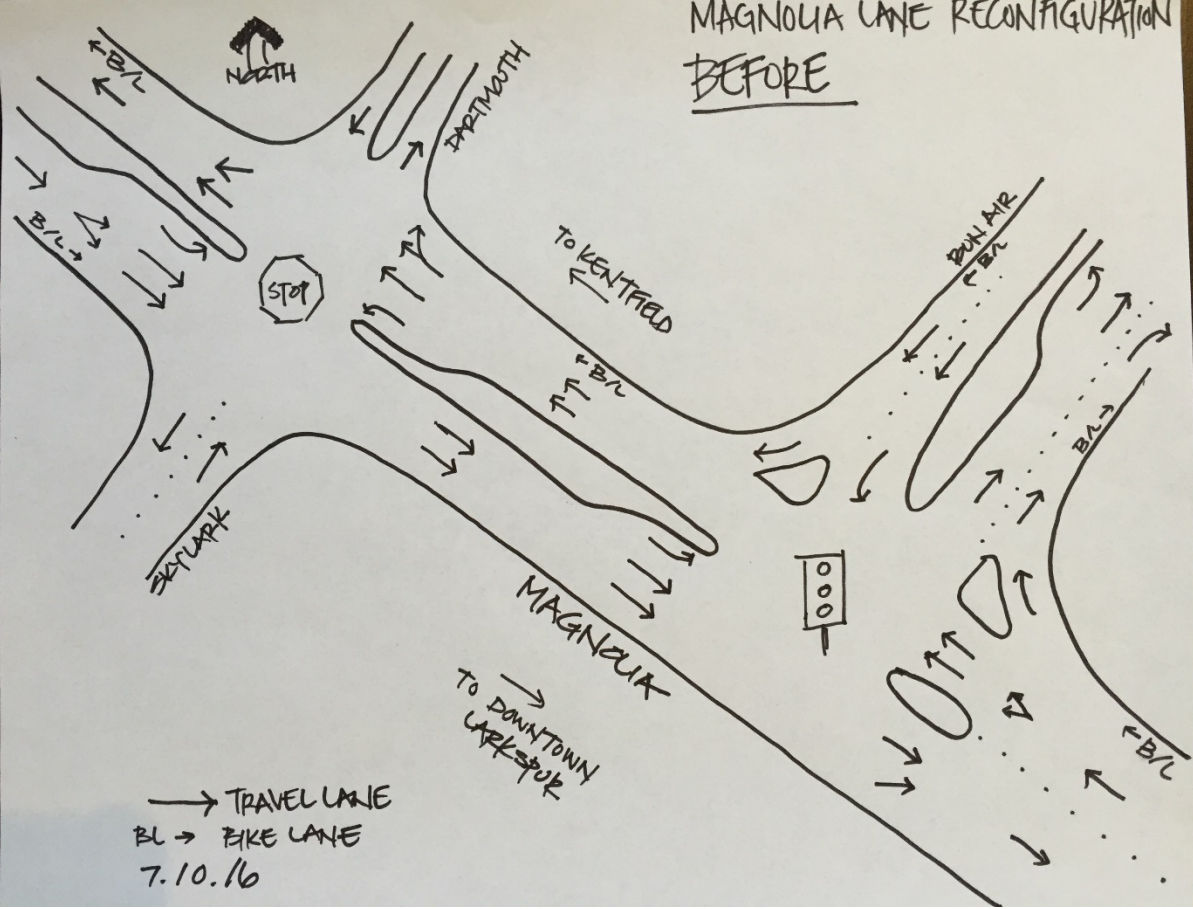 MAGNOLIA LANE RECONFIGURATION
BEFORE
NORTH
B/L
DARTMOUTH
B/L
STOP
TO KENTFIELD
BON AIR
B/L
B/L
B/L
SKYLARK
MAGNOLIA
TO DOWNTOWN
LARKSPUR
B/L
→ TRAVEL LANE
BL → BIKE LANE
7.10.16